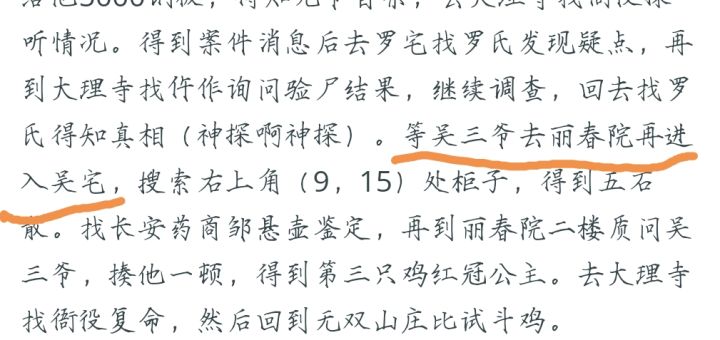 听情况。得到案件消息后去罗宅找罗氏发现疑点，再
到大理寺找仵作询问验尸结果，继续调查，回去找罗
氏得知真相（神探啊神探）。等吴三爷去丽春院再进
入吴宅，搜索右上角（9，15）处柜子，得到五石
散。找长安药商邹悬壶鉴定，再到丽春院二楼质问吴
三爷，揍他一顿，得到第三只鸡红冠公主。去大理寺
找衙役复命，然后回到无双山庄比试斗鸡。